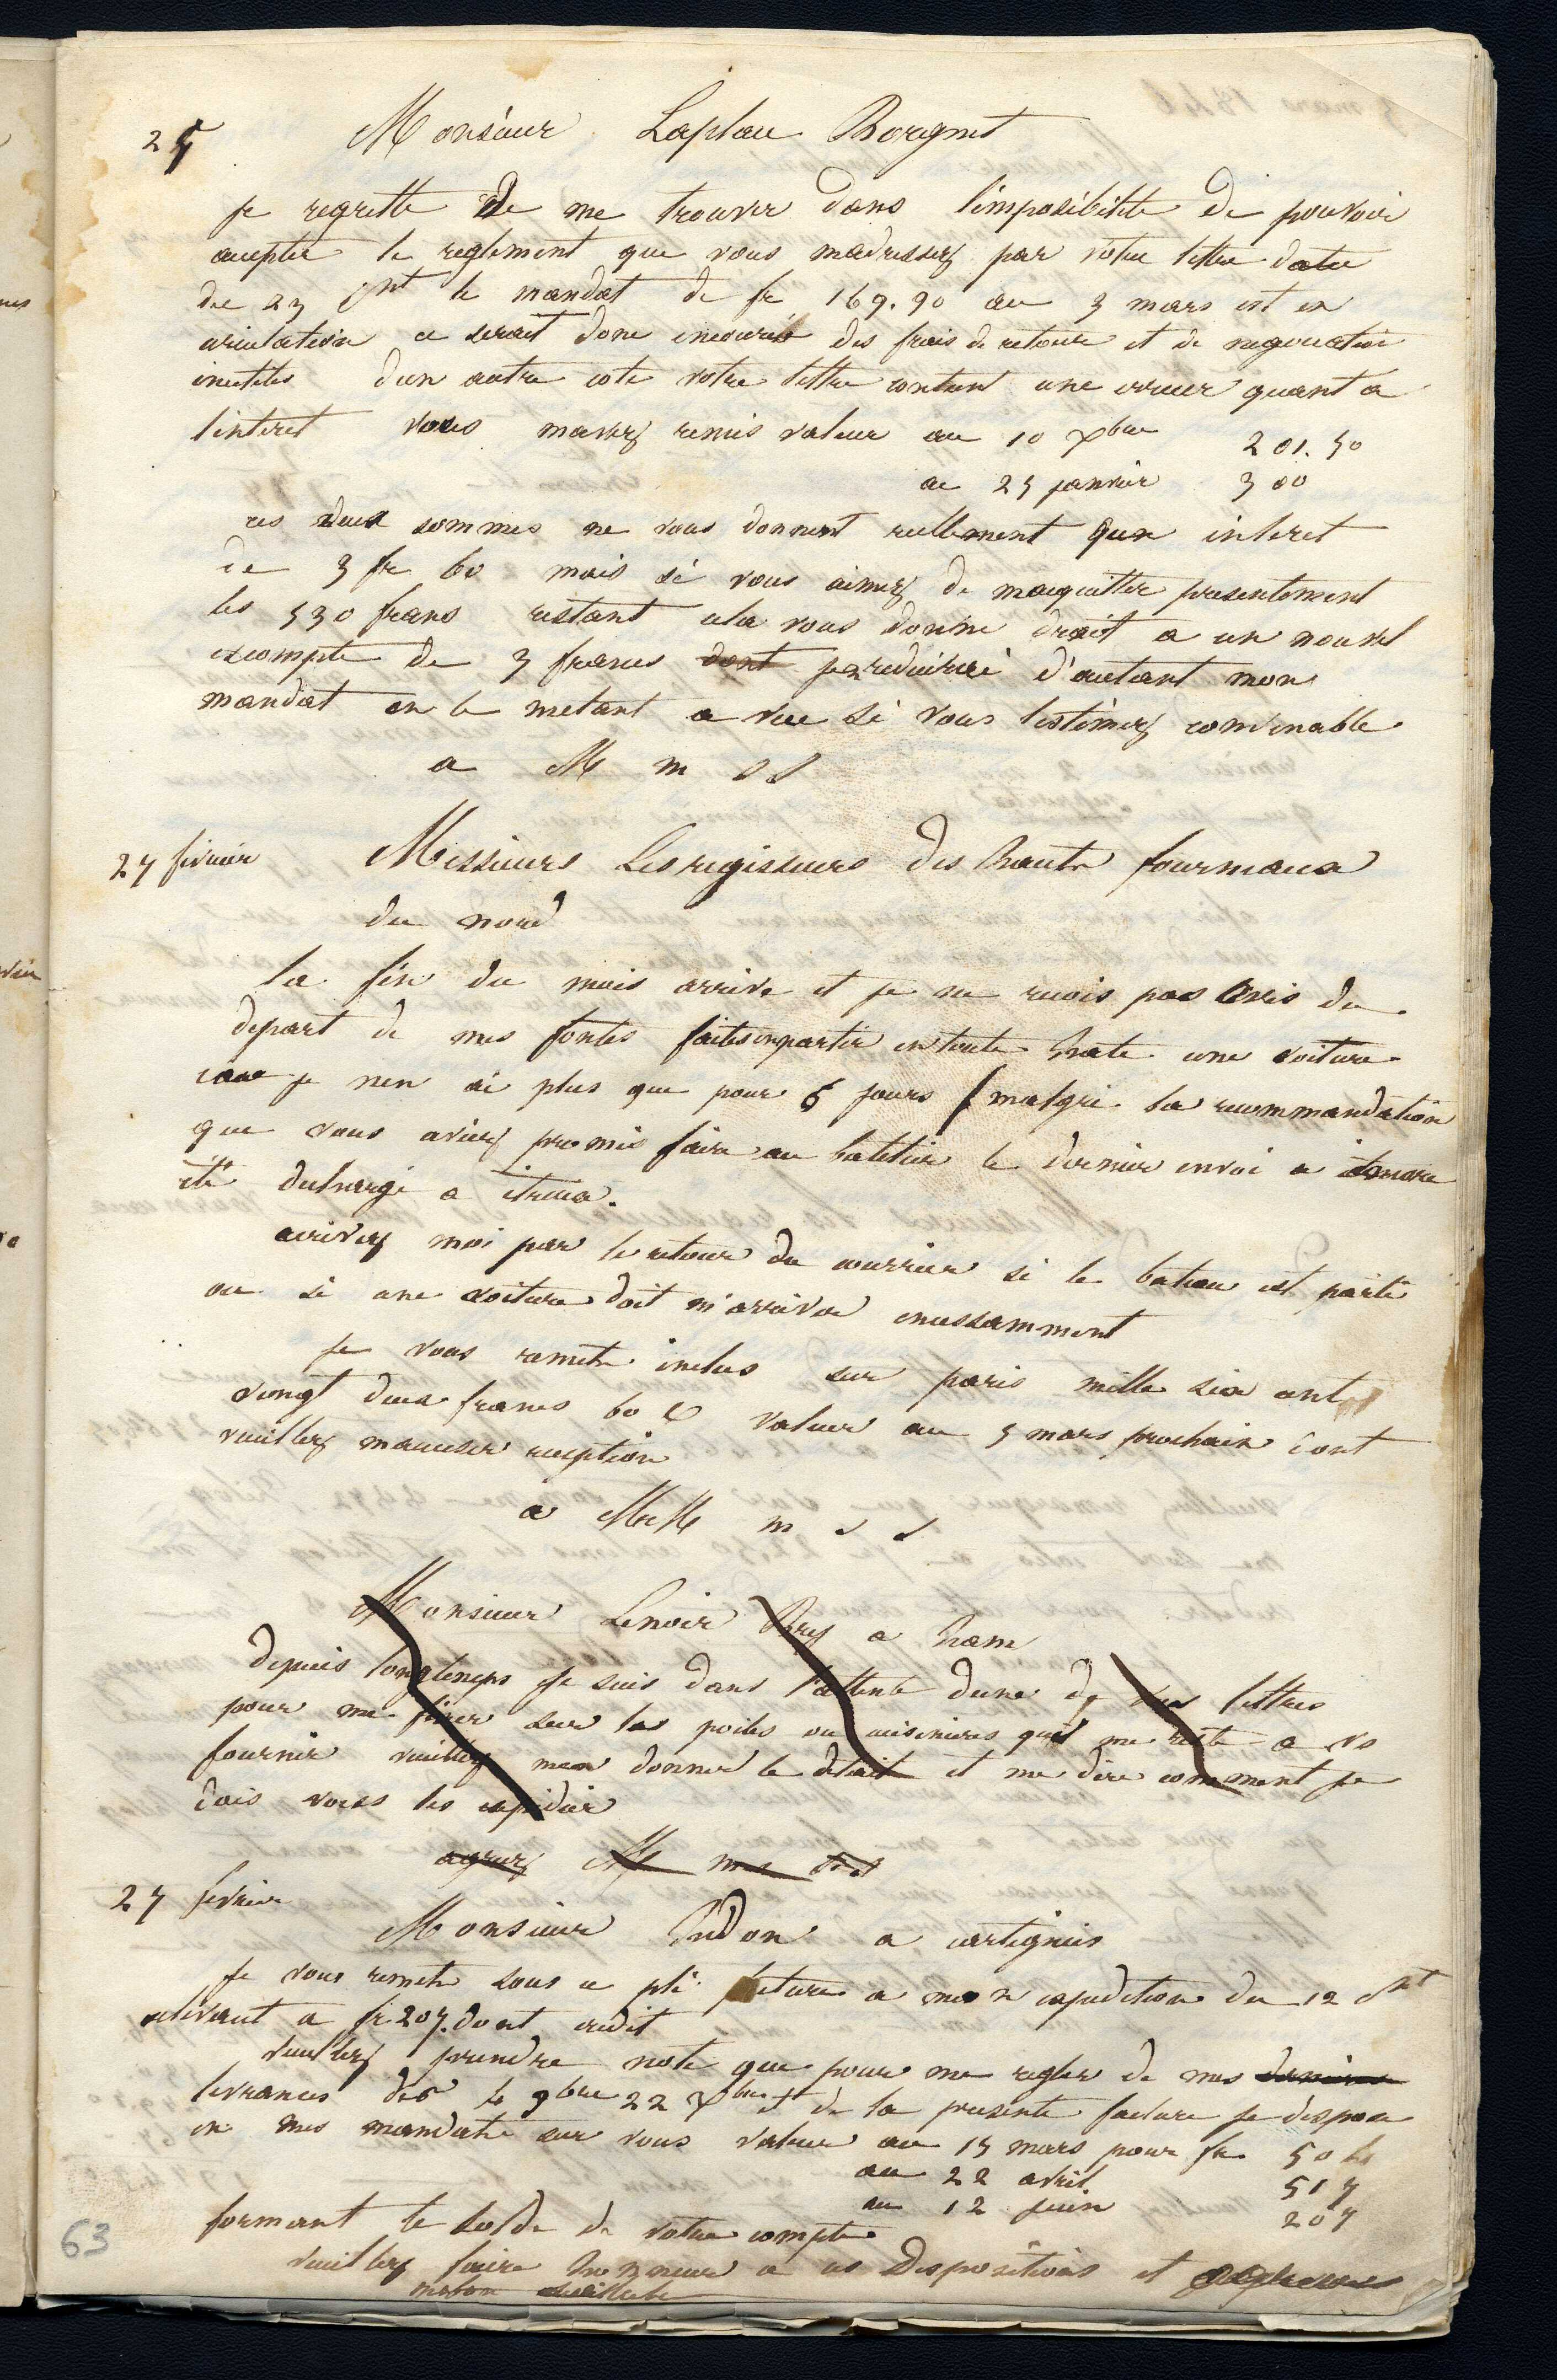 25 Monsieur Laplau Borgnet
je regrette de me trouver dans limposibilite de pouvoir
accepter le reglement que vous madressez par votre lettre datee
du 23 ct le mandat de fr 169.90 au 3 mars est en
circulation ce serait donc encourir des frais de retour et de negociation
inutiles dun autre cote votre lettre contient une erreur quant a
linteret vous mavez remis valeur au 10 Xbre 201.50
au 25 janvier 300
ces deux sommes ne vous donnent reellement qun interet
de 3 fr 60 mais si vous aimez de macquitter presentement
les 530 francs restant cela vous donne droit a un nouvel
escompte de 3 francs dont je reduirai d'autant mon
mandat en le metant a vue si vous lestimez convenable
a M m s s
27 fevrier Messieurs les regisseurs des hauts fourneaux
du nord
la fin du mois arrive et je ne recois pas avis du
depart de mes fontes faites en partir en toute hate une voiture
car je nen ai plus que pour 6 jours malgre la recommandation
que vous aviez promis faire au batelier le dernier envoi a encore
ete decharge a etreux.
ecrivez moi par le retour du courrier si le bateau est parti
ou si une voiture doit m'arriver incessamment
je vous remets inclus sur paris mille six cent
vingt deux francs 60 c valeur au 5 mars prochain dont
veuillez maccuser reception
a MM m s s
Monsieur Lenoir Bry a ham
depuis longtemps je suis dans l'attente dune de vos lettres
pour me fixer sur les poiles ou cuisinieres quil me reste a vs
fournir veuillez men donner le detail et me dire comment je
dois vous les expedier
agreez M mes
27 fevrier
Monsieur hudon a cartignies
je vous remets sous ce pli facture a mon expedition du 12 ct
selevant a fr. 207. dont credit
veuillez prendre note que pour me regler de mes dernieres
livrances des 9bre 22 Xbre et de la presente facture je dispose
en mes mandats sur vous valeur au 15 mars pour fr
au 22 avril 517
au 12 juin 207
formant le solde de votre compte
veuillez faire honneur a ces dispositions et
63